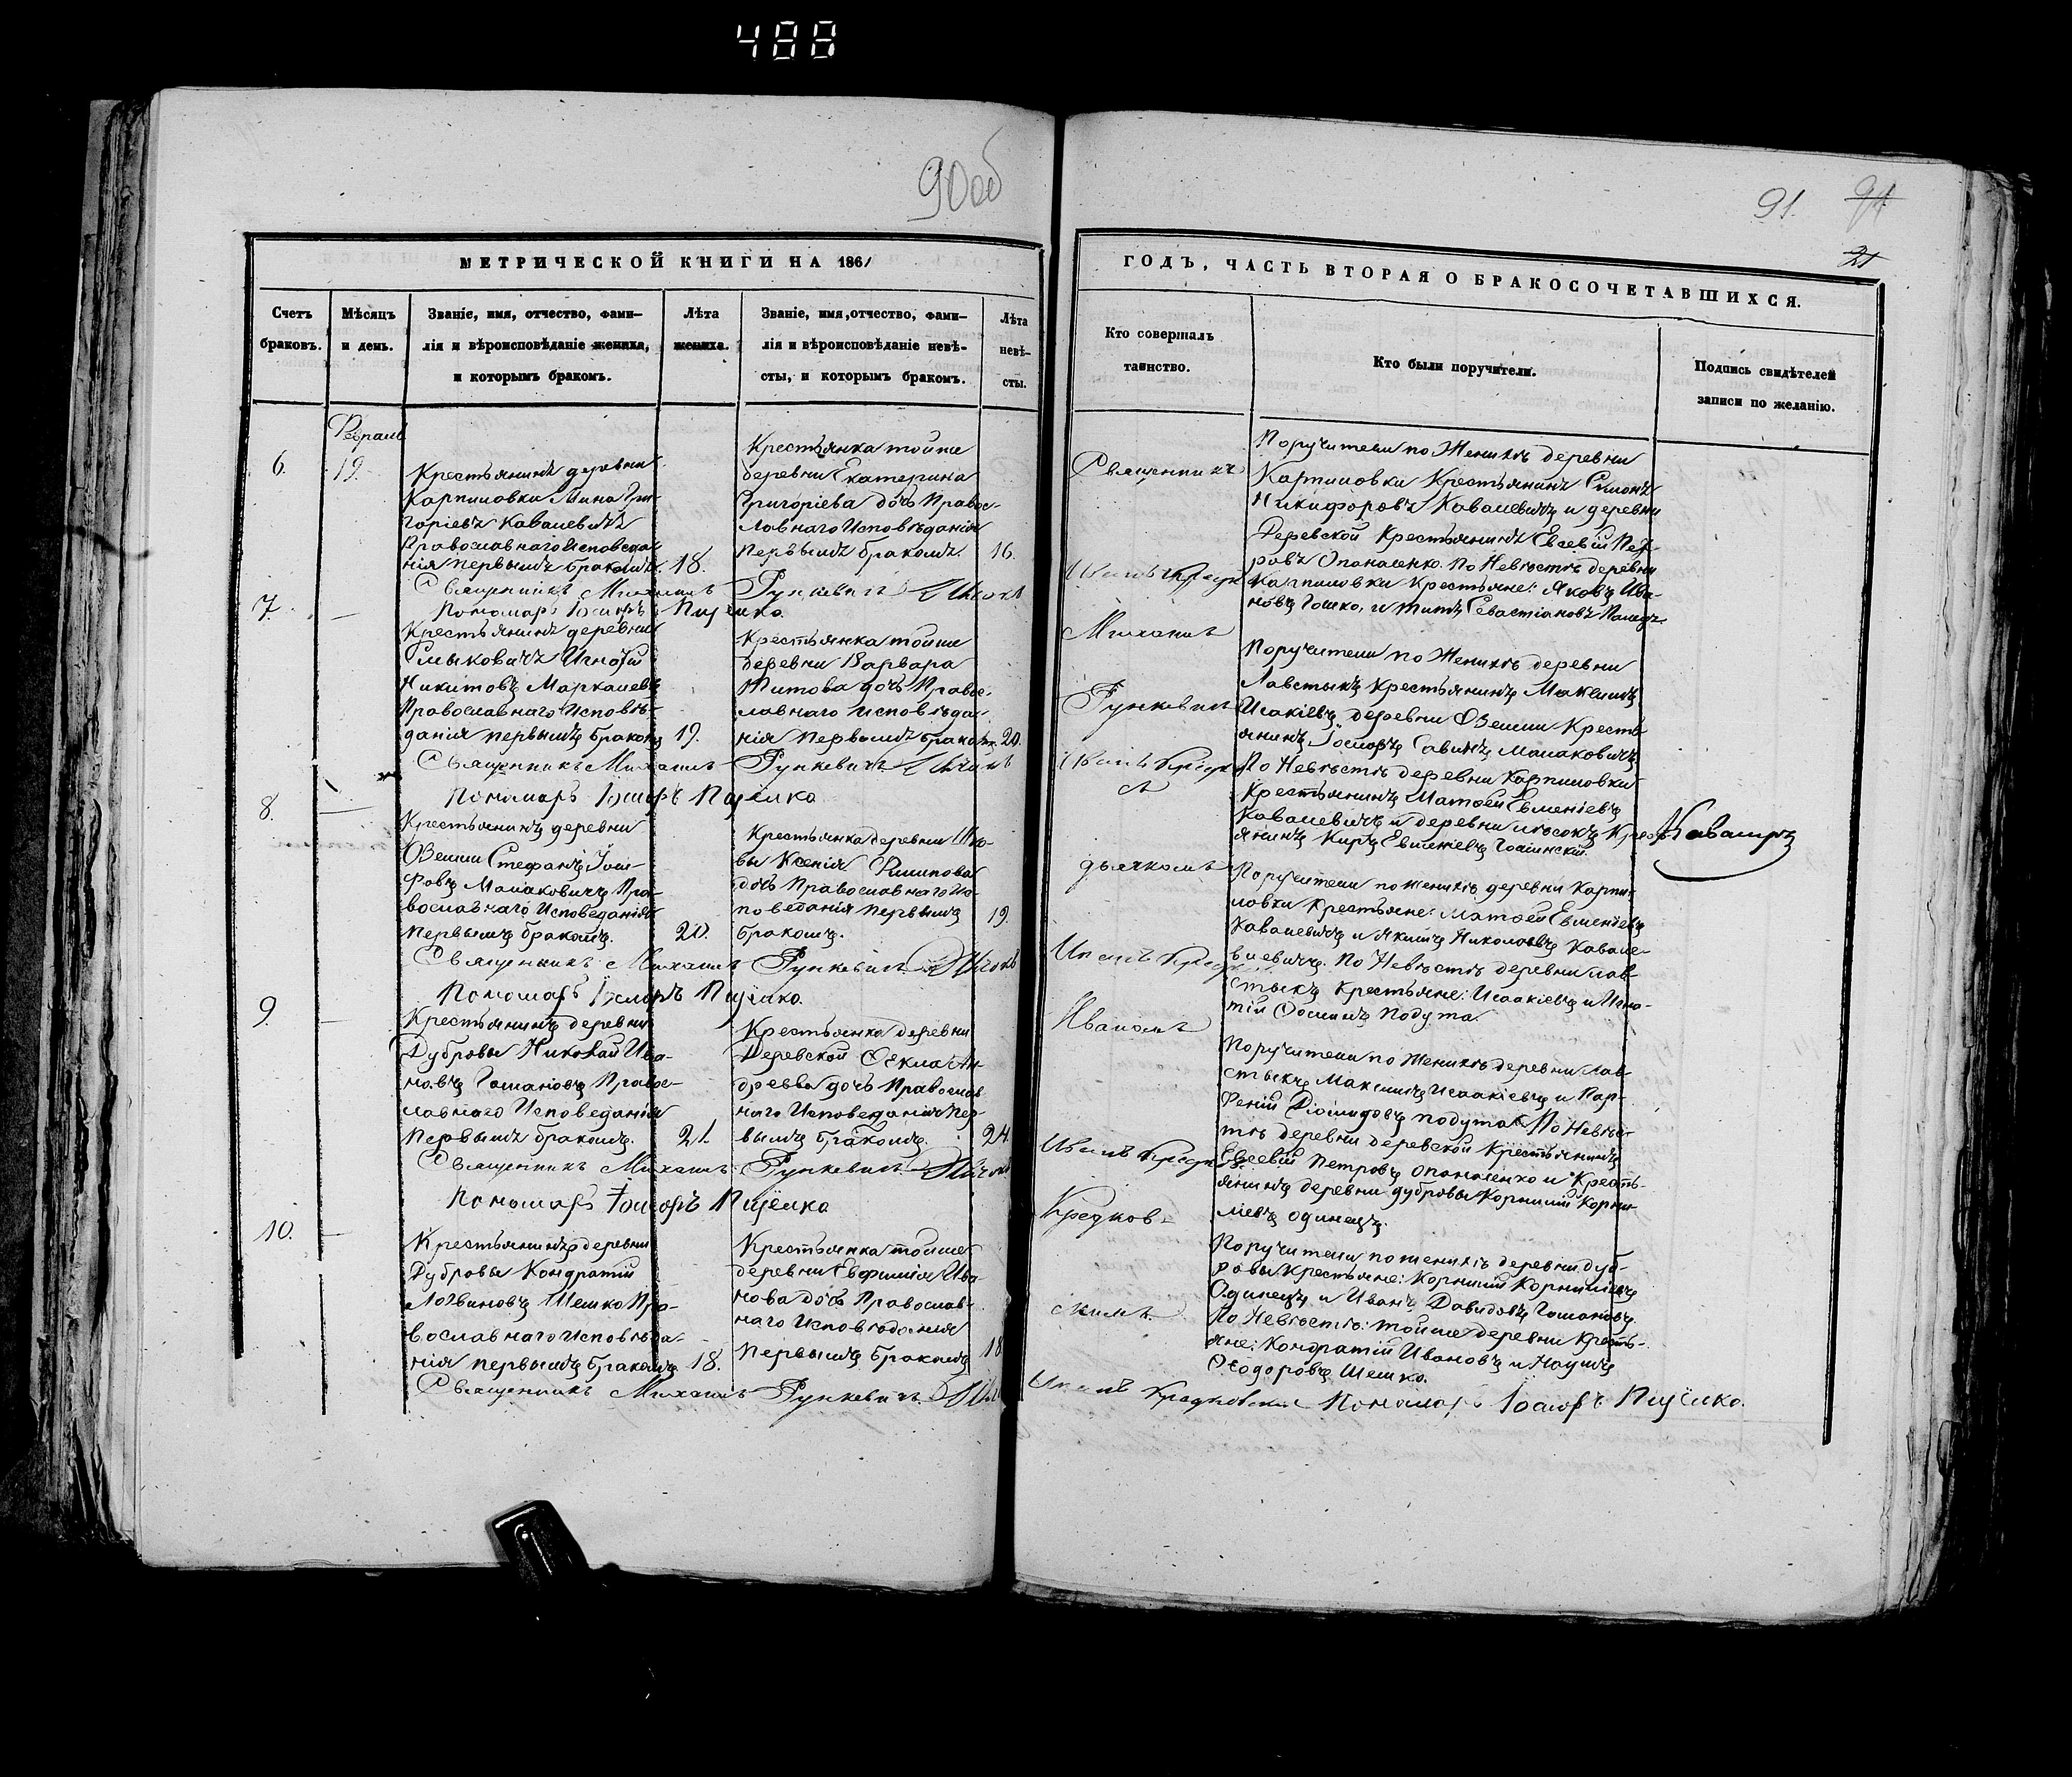 488
90об
91. 94
21
МЕТРИЧЕСКОЙ КНИГИ НА 1861
ГОДЪ, ЧАСТЬ ВТОРАЯ О БРАКОСОЧЕТАВШИХСЯ.
Счетъ
браковъ.
Мѣсяцъ
и день.
Званіе, имя, отчество, фами-
лія и вѣроисповѣданіе жениха,
и которымъ бракомъ.
Лѣта
жениха.
Званіе, имя, отчество, фами-
лія и вѣроисповѣданіе невѣ-
сты, и которымъ бракомъ.
Лѣта
невѣ-
сты.
Кто совершалъ
таинство.
Кто были поручители.
Подпись свидѣтелей
записи по желанію.
6.
19.
Крестьянинъ деревни
Карпиловки Мина Гри-
горіевъ Ковалевичъ
Православнаго Исповеда-
нія первымъ бракомъ.
18.
Крестьянка тойже
деревни Екатерина
Григоріева дочь Правос-
лавнаго Исповѣданія
первымъ бракомъ.
16.
Священникъ Михаилъ Рункевичъ
Пономарь Іосифъ
Поручители по Женихѣ деревни
Карпиловки Крестьянинъ Симонъ
Никифоровъ Ковалевичъ и деревни
Деревской Крестьянинъ Евсевій Пет-
ровъ Опанасенко. По Невѣстѣ деревни
Карпиловки Крестьяне: Яковъ Ива-
новъ Гошко, и Титъ Севастіановъ
7.
Крестьянинъ деревни
Смыковичъ Игнатій
Никитовъ
Православнаго Исповѣ-
данія первымъ бракомъ
19.
Крестьянка тойже
деревни Варвара
Титова дочь Правос-
лавнаго исповѣда-
нія первымъ бракомъ.
20.
Священникъ Михаилъ Рункевичъ
Пономарь Іосифъ
Поручители по Женихѣ деревни
Лавстыкъ Крестьянинъ Максимъ
Исакіевъ, деревни Крестья-
янинъ Іосифъ Савинъ Малаковичъ
По Невѣстѣ деревни Карпиловки
Крестьянинъ Матѳей Евменіевъ
Ковалевичъ и деревни
янинъ Киръ Евменіевъ
8.
Крестьянинъ деревни
Стефанъ Іоси-
фовъ Малаковичъ Пра-
вославнаго Исповеданія
первымъ бракомъ.
20.
Крестьянка деревни
Ксенія Филипова
дочь Православнаго Ис-
поведанія первымъ
бракомъ.
19.
Священникъ Михаилъ Рункевичъ
Пономарь Іосифъ
Поручители по женихѣ деревни Карпи-
ловки Крестьяне: Матѳей Евменіевъ
Ковалевичъ и Якимъ Николаевъ Ковале-
вичъ. По Невѣстѣ деревни Лав-
стыкъ Крестьяне: Исаакіевъ и Игна-
тій Ѳоминъ Подута.
9.
Крестьянинъ деревни
Дубровы Николай Ива-
новъ Гошановъ Правос-
лавнаго Исповеданія
первымъ бракомъ.
21.
Крестьянка деревни
Деревской Ѳекла Ан-
дреева дочь Православ-
наго Исповеданія пер-
вымъ бракомъ.
24.
Священникъ Михаилъ Рункевичъ
Пономарь Іосифъ
Поручители по Женихѣ деревни Лав-
стыкъ Максимъ Исаакіевъ и Пар-
феній Діомидовъ Подута. По Невѣс-
тѣ деревни Деревской Крестьянинъ
Евсевій Петровъ Опанасенко и Кресть-
янинъ деревни Дубровы Корнилій Корни-
ліевъ Одинецъ.
10.
Крестьянинъ деревни
Дубровы Кондратій
Логвиновъ Шешко Пра-
вославнаго Исповѣда-
нія первымъ бракомъ
18.
Крестьянка тойже
деревни Евфимія Ива-
нова дочь Православ-
наго Исповѣданія
первымъ бракомъ
18
Священникъ Михаилъ Рункевичъ
Пономарь Іосифъ
Поручители по женихѣ деревни Дуб-
ровы Крестьяне: Корнилій Корниліевъ
Одинецъ и Иванъ Давидовъ Гошановъ.
По Невѣстѣ: тойже деревни Кресть-
яне: Кондратій Ивановъ и Наумъ
Ѳеодоровъ Шешко.
Священникъ
Михаилъ
Рункевичъ
съ
дьячкомъ
Иваномъ
Кредков-
скимъ.